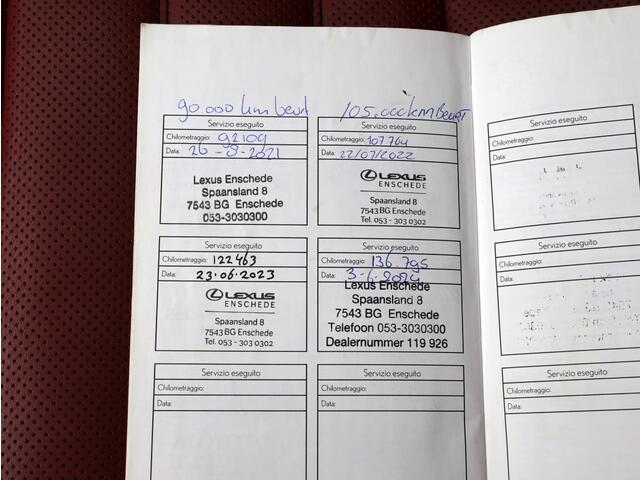 90.000 km beurt
105.000km Beurt
Servizio eseguito
Chilometraggio: 92109
Data: 26-8-2021
Lexus Enschede
Spaansland 8
7543 BG Enschede
053-3030300
Servizio eseguito
Chilometraggio: 107764
Data: 22/07/2022
LEXUS
ENSCHEDE
Spaansland 8
7543 BG Enschede
Tel. 053 - 303 0302
Servizio eseguito
Chilometraggio: 122463
Data: 23.06.2023
LEXUS
ENSCHEDE
Spaansland 8
7543 BG Enschede
Tel. 053 - 303 0302
Servizio eseguito
Chilometraggio: 136.795
Data: 3-6-2024
Lexus Enschede
Spaansland 8
7543 BG Enschede
Telefoon 053-3030300
Dealernummer 119 926
Servizio eseguito
Chilometraggio:
Data:
Servizio eseguito
Chilometraggio:
Data:
Servizio eseguito
Chilometraggio:
Data:
Servizio eseguito
Chilometraggio:
Data:
Servizio eseguito
Chilometraggio:
Data: